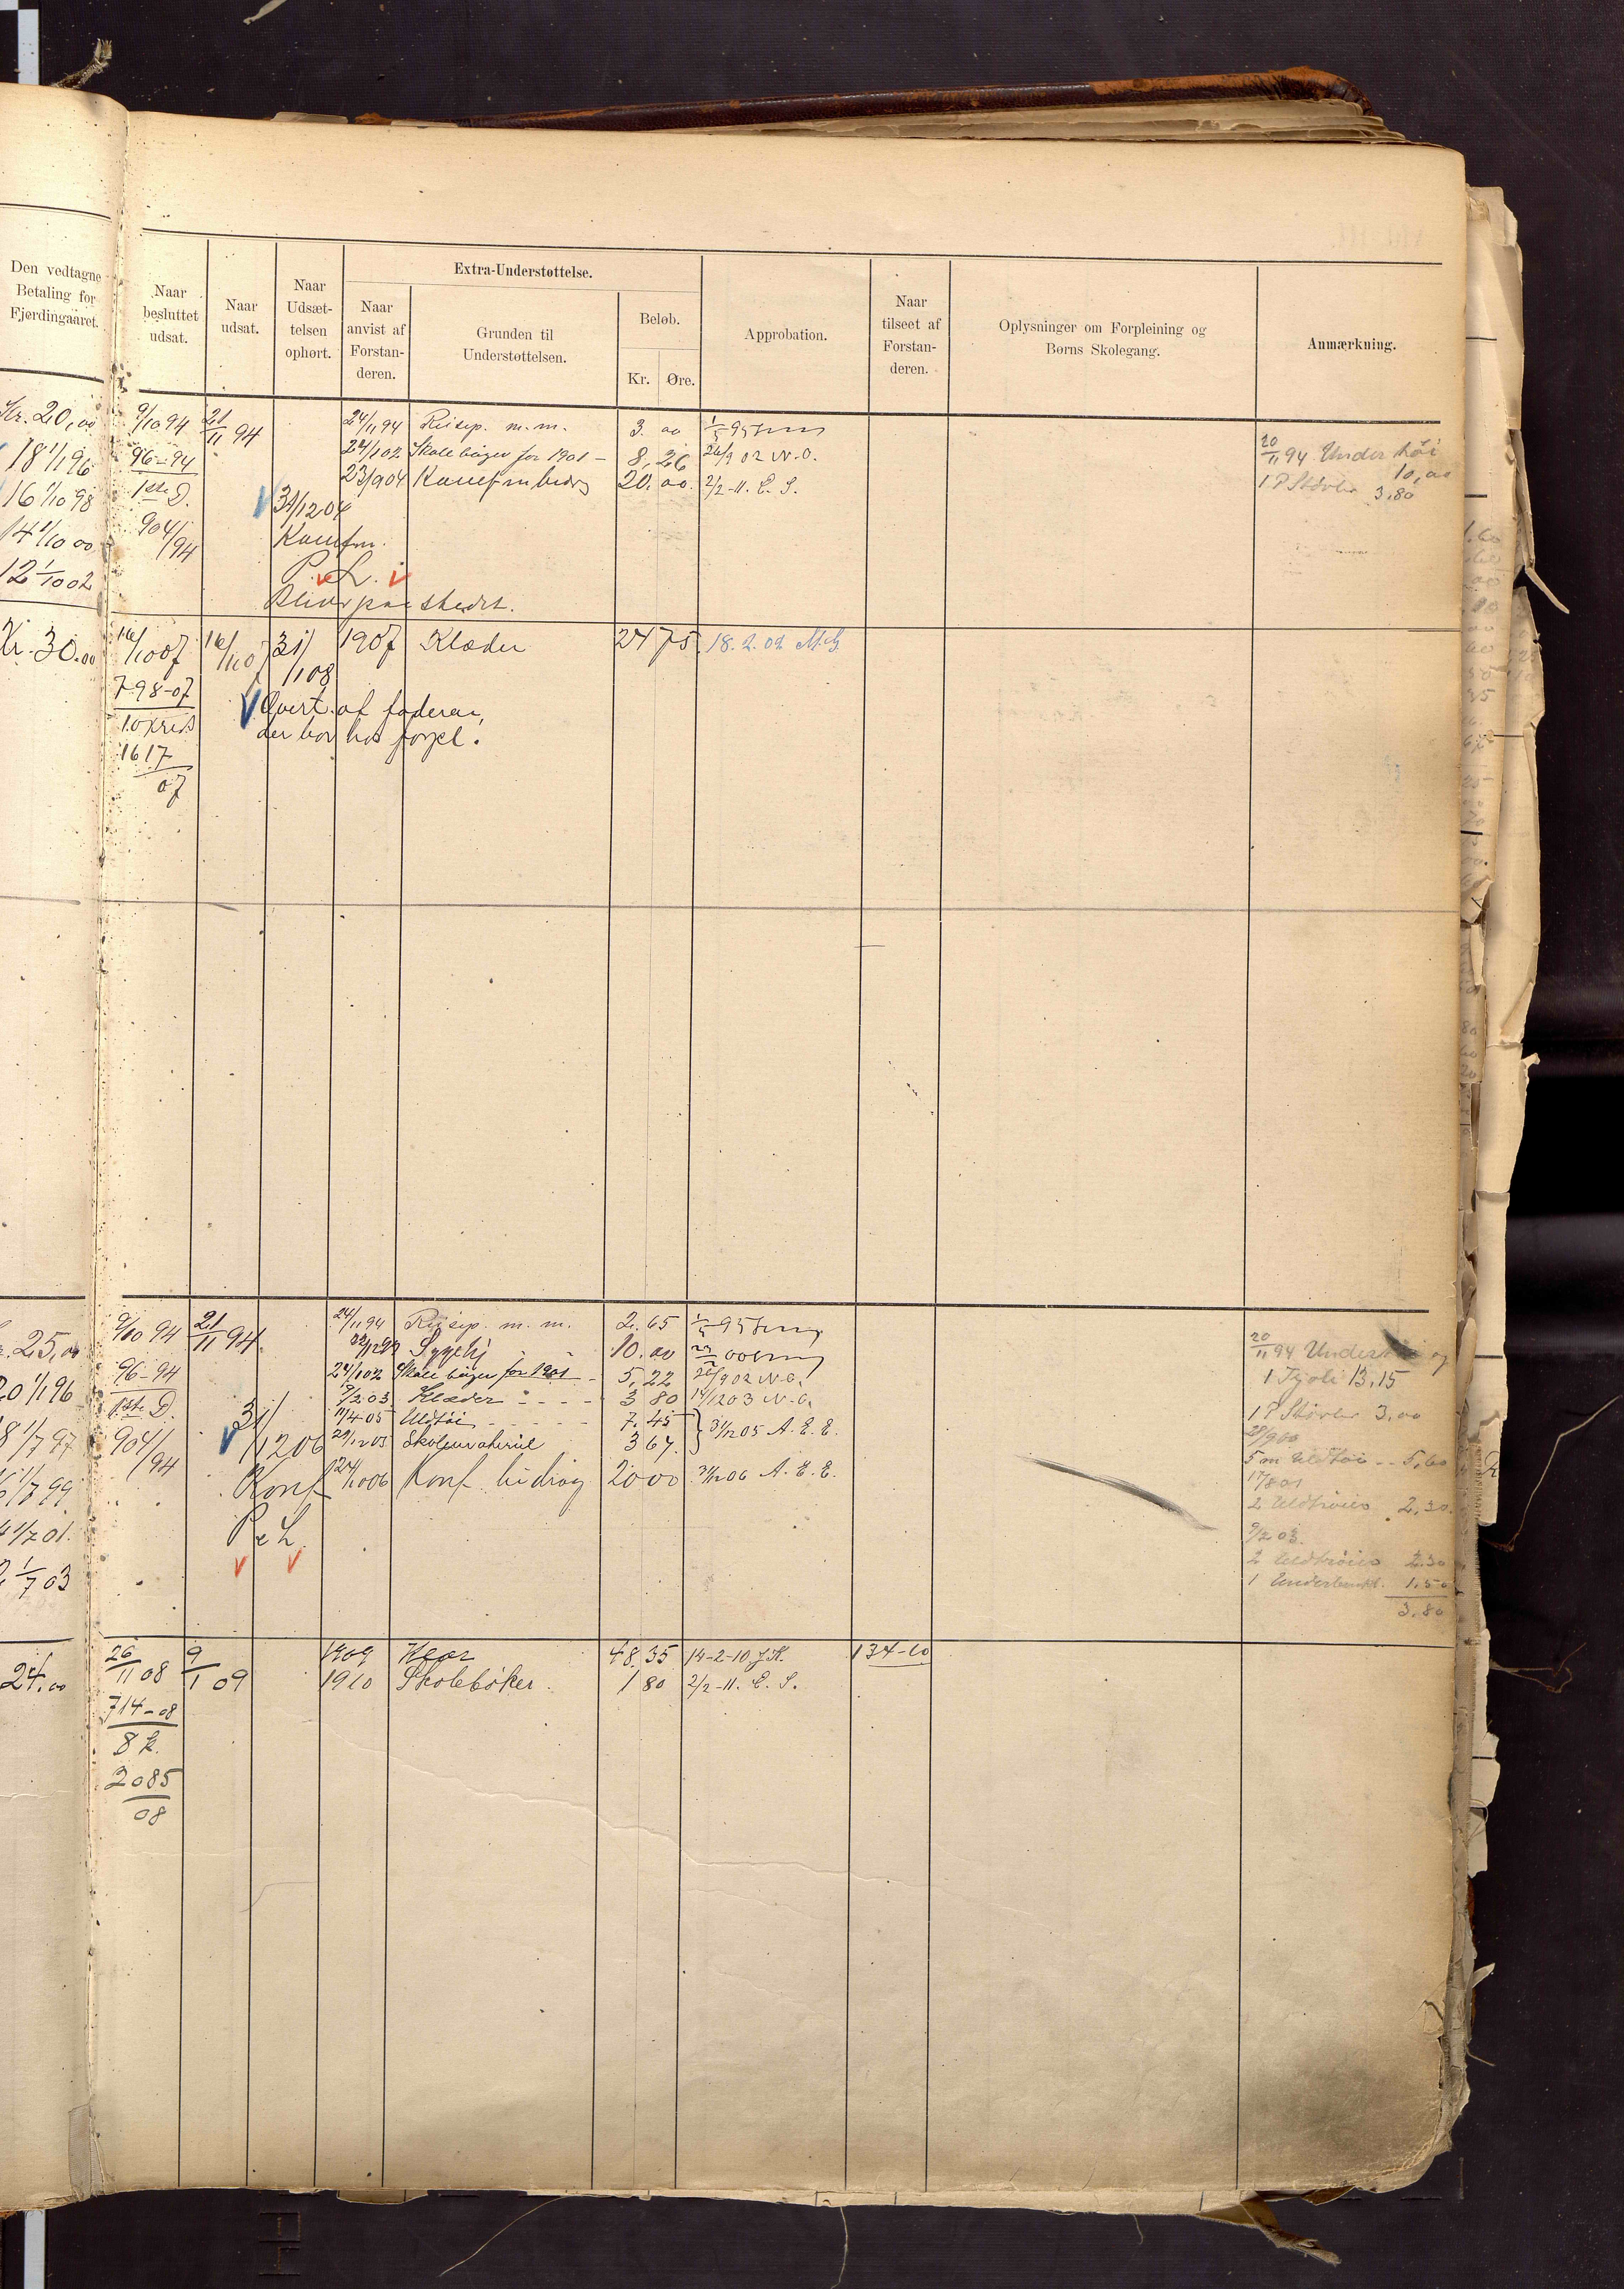 Den vedtagne
Betaling for
Fjerdingaaret.
Naar
besluttet
udsat.
Naar
udsat.
Naar
Udsæt-
telsen
ophørt.
Extra-Understøttelse.
Naar
anvist af
Forstan-
deren.
Grunden til
Understøttelsen.
Beløb.
Kr. Øre.
Approbation.
Naar
tilseet af
Forstan-
deren.
Oplysninger om Forpleining og
Børns Skolegang.
Anmærkning.
Kr. 20,00
18 1/1 96
16 1/10 98
14 1/10 00
12 1/10 02
9/10 94
96-94
1ste D.
904/94
21/11 94
31/12 04
Konfm.
P. L.
Bliver paa stedet.
24/11 94 Reisep. m. m. 3. 00 1/5 95
24/1 02 Skolebøger for 1901 - 8,26 26/9 02 N.O.
23/9 04 20.00. 2/2-11. E. S.
20/11 94 Undertøi
10,00
1 P Støvler 3.80
Kr. 30.00
16/10 07
798-07
10 kreds
1617/07
16/10 7
31/1 08
Overt. af faderen,
der bor hos forpl.
1907 Klæder 24 75 18.2.09 M.G.
25,00
20 1/1 96
8 1/7 97
6 1/7 99
4 1/7 01.
1/7 03
9/10 94
96-94
1ste D.
904/94
21/11 94.
31/12 06
Konf
P e L.
24/11 94 Reisep. m. m. 2.65 1/5 95
Sygehj 10.00
24/1 02 Skolebøger for 1901 - 5,22 26/9 02 N.O.
9/2 03 Klæder - - - 3 80 14/12 03 N.O.
11/4 05 Uldtøi - - - - 7.45
29/12 05 Skolemateriel 3 67. 31/12 05 A. E. E.
24/10 06 Konf. bidrag 20 00 31/12 06 A. E. E.
20/11 94 Undertøi og
1 Kjole 13,15
1 P Støvler 3,00
28/9 00
Uldtøi - - 5,60
17/8 01
2 Uldtrøier 2,30.
9/2 03.
2 Uldtrøier 2.30
1 1.50
3.80
24,00
26/11 08
714-08
8 k.
2085/08
9/1 09
1909 Klær 48.35 14-2-10 J.K. 134-10
1910 Skolebøker. 1 80 2/2-11. E. S.